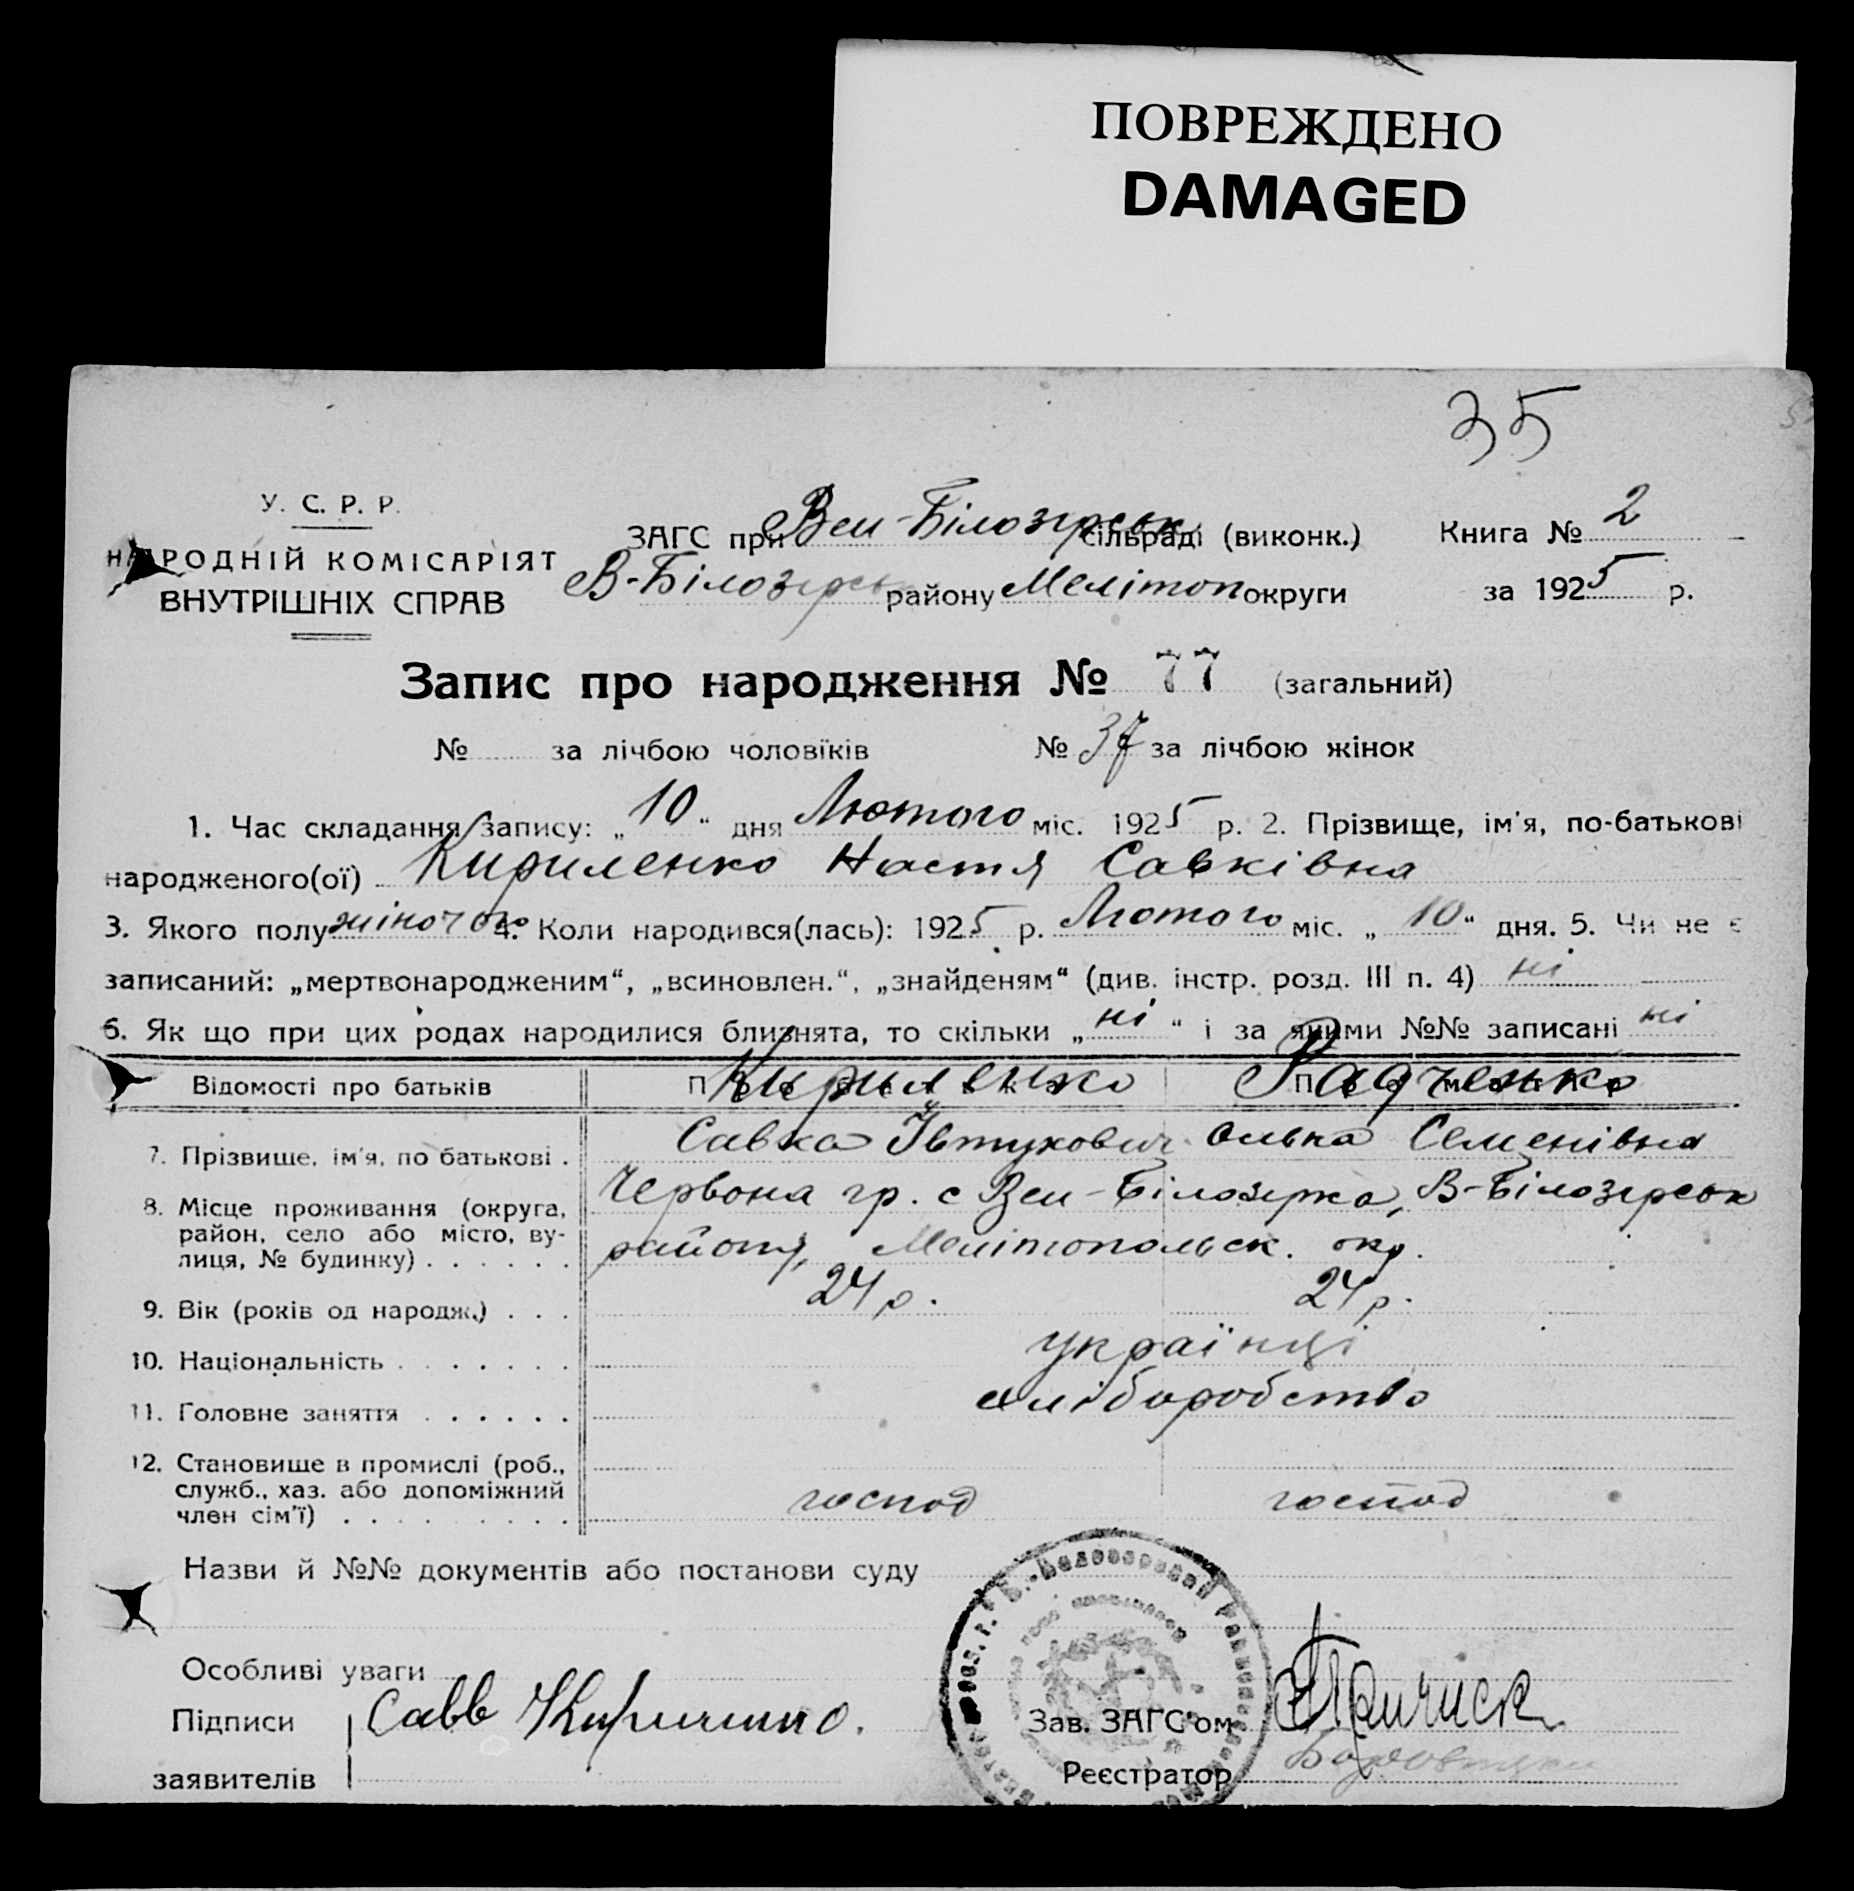 ПОВРЕЖДЕНО
DAMAGED
35
У. С. Р. Р.
НАРОДНІЙ КОМІСАРІЯТ
ВНУТРІШНІХ СПРАВ
ЗАГС при Вел-Білозірськ сільраді (виконк.) Книга № 2
В-Білозерсь району Мелітоп округи за 1925 р.
Запис про народження № 77 (загальний)
№ за лічбою чоловіків № 37 за лічбою жінок
1. Час складання запису: „10“ дня Лютого міс. 1925 р. 2. Прізвище, ім'я, по-батькові
народженого(ої) Кириленко Настя Савківна
3. Якого полу жіночого 4. Коли народився(лась): 1925 р. Лютого міс. „10“ дня. 5. Чи не є
записаний: „мертвонародженим“, „всиновлен.“, „знайденям“ (див. інстр. розд. III п. 4) ні
6. Як що при цих родах народилися близнята, то скільки „ні“ і за якими №№ записані ні
Відомості про батьків Про батька Кириленко Про матір Радченко
7. Прізвище, ім'я, по батькові . Савка Ївтухович Олька Семенівна
8. Місце проживання (округа, район, село або місто, вулиця, № будинку) . . . . . . Червона гр. с Вел-Білозерка, В-Білозерськ
району, Мелітопольск. окр.
9. Вік (років од народж.) . . . 24 р. 24 р.
10. Національність . . . . . . . українці
11. Головне заняття . . . . . . хліборобство
12. Становище в промислі (роб., служб., хаз. або допоміжний член сім'ї) . . . . . . . . . господ господ
Назви й №№ документів або постанови суду
Особливі уваги
Підписи Савв Кириленко.
Зав. ЗАГС'ом
заявителів
Реєстратор